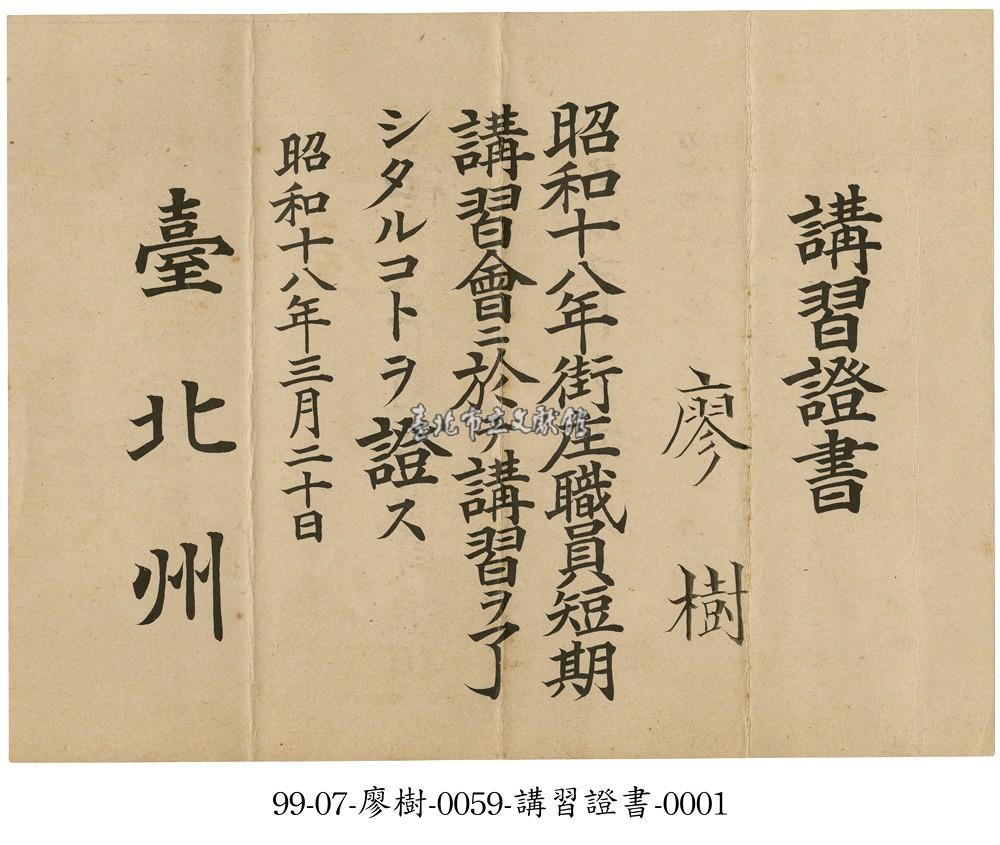 講習證書
廖樹
昭和十八年街庄職員短期
講習會ニ於テ講習ヲ了
シタルコトヲ證ス
昭和十八年三月二十日
臺北州
臺北市立文獻館
99-07-廖樹-0059-講習證書-0001